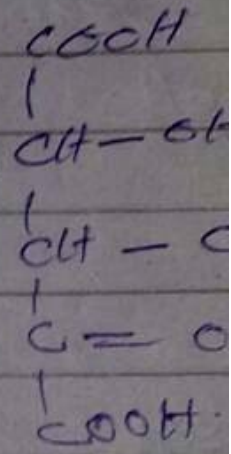 COOH
CH - OH
CH - C
C = O
COOH.